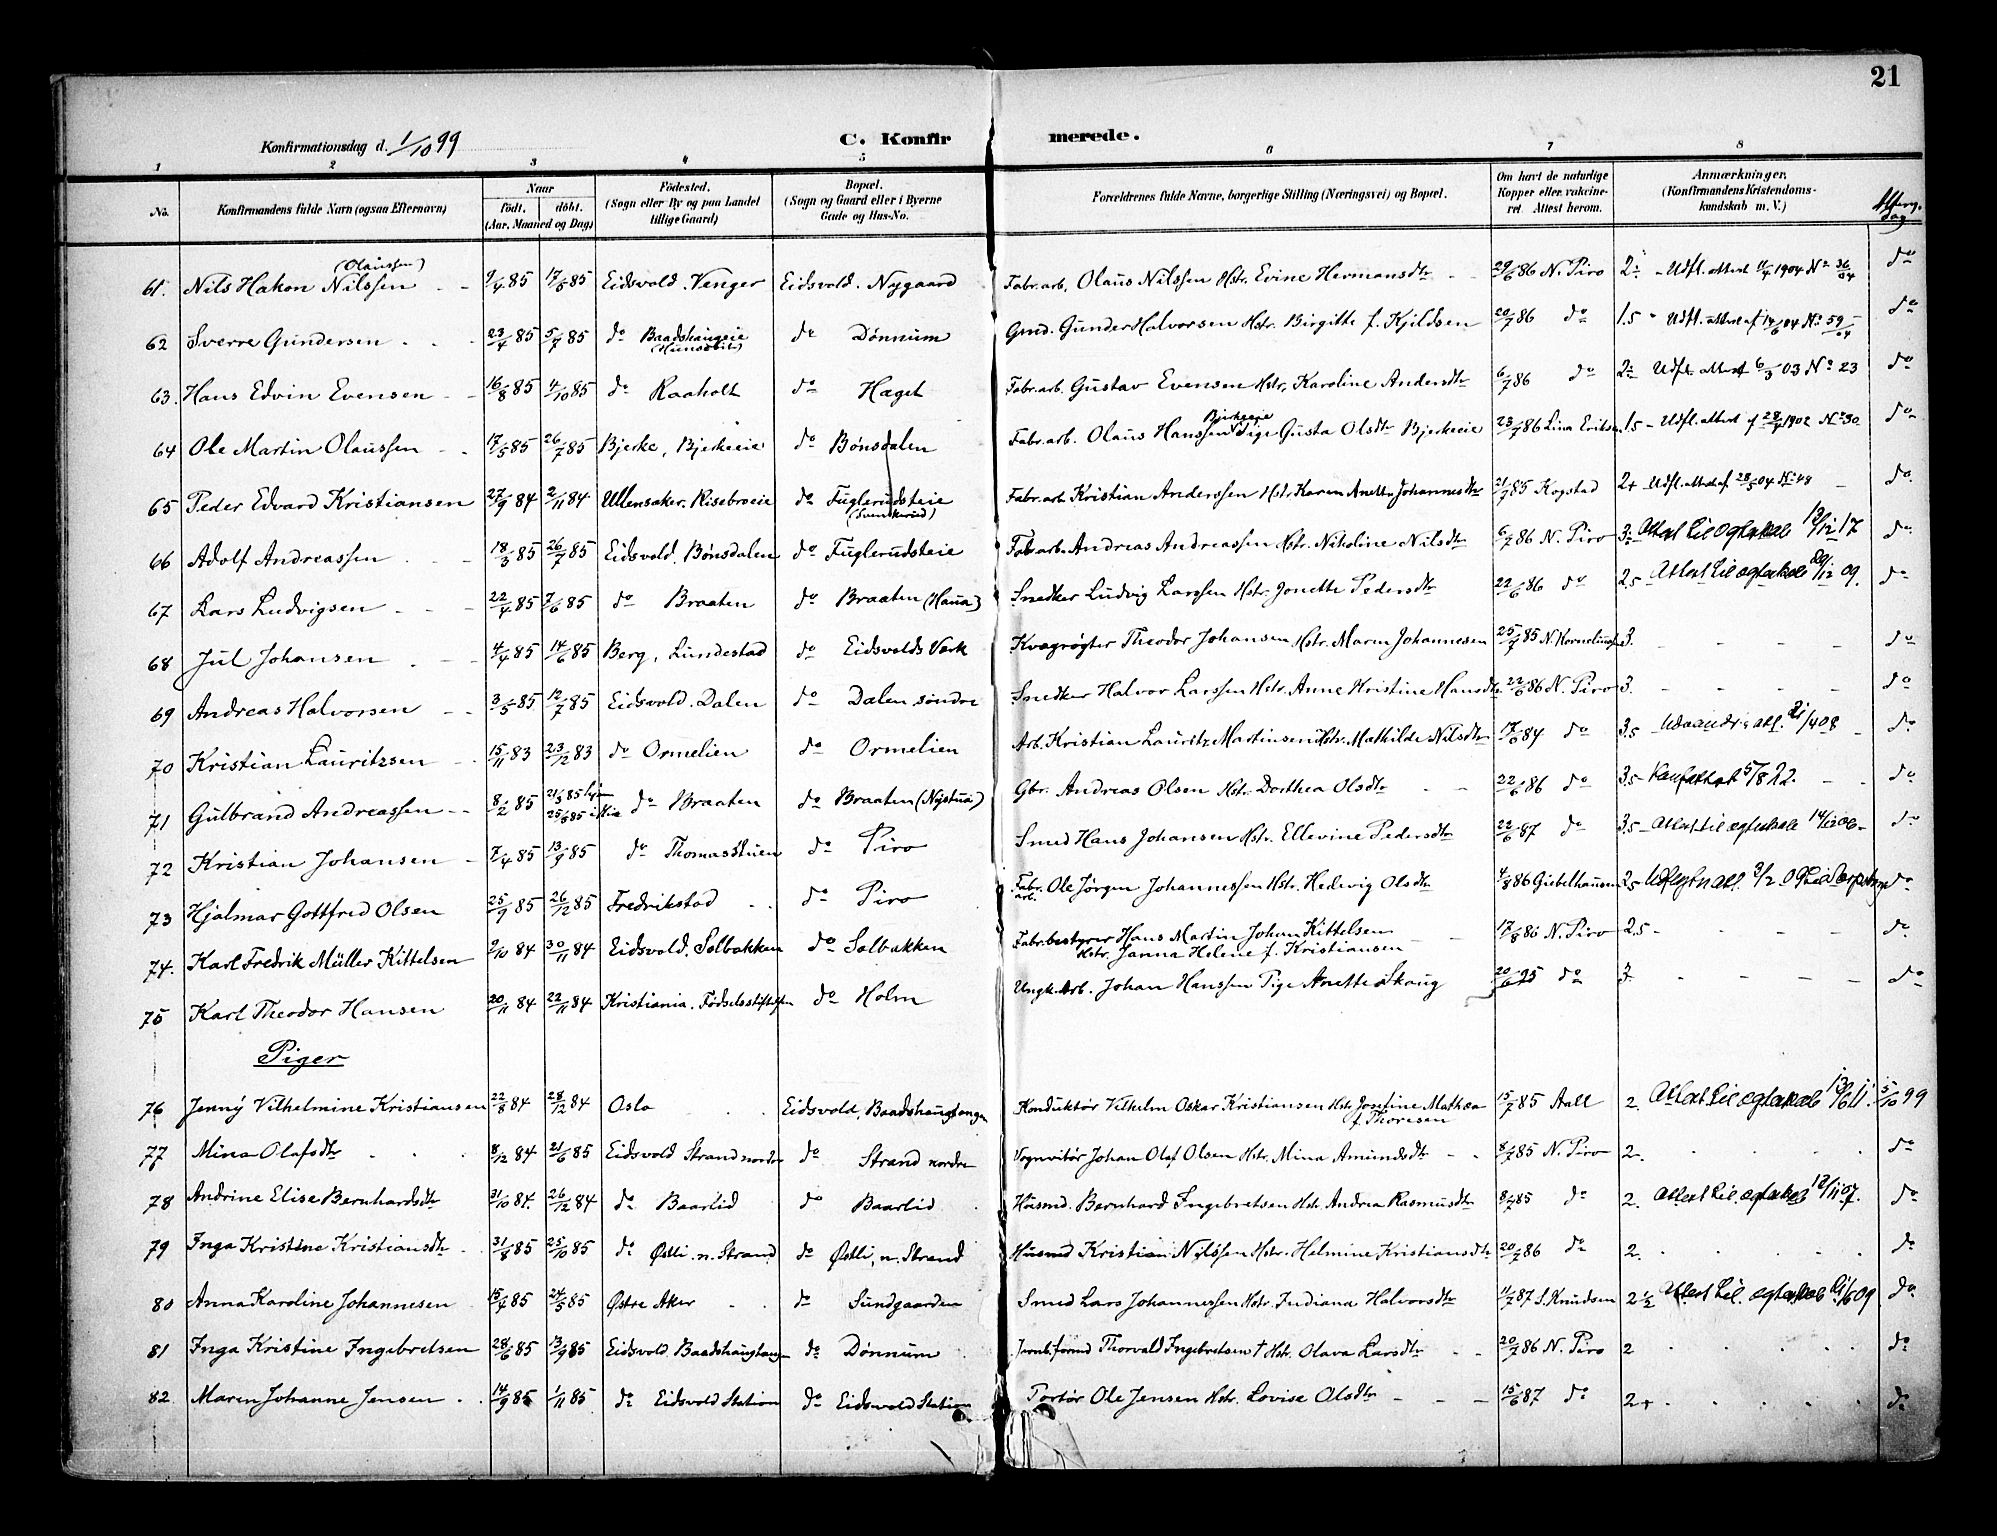 21
Konfirmationsdag d. 1/10 99
C. Konfirmerede.
1 2 3 4 5 6 7 8
No. Konfirmandens fulde Navn (ogsaa Efternavn) Naar født. døbt. (Aar, Maaned og Dag) Fødested. (Sogn eller By og paa Landet tillige Gaard) Bopæl. (Sogn og Gaard eller i Byerne Gade og Hus-No.) Forældrenes fulde Navne, borgerlige Stilling (Næringsvei) og Bopæl. Om havt de naturlige Kopper eller vakcineret. Attest herom. Anmærkninger. (Konfirmandens Kristendomskundskab m. V.)
61. Nils Hakon Nilssen (Olaussen) 9/4 85 17/5 85 Eidsvold. Venger Eidsvold. Nygaard Fabr. arb. Olaus Nilssen Hstr. Evine Hermansdtr 29/6 86 N. Piro 2÷ Udfl. attest 11/4 1904 No 36/04 do
62 Sverre Gundersen 23/4 85 5/7 85 do Baadshaugeie do Dønnum Gmd. Gunder Halvorsen Hstr. Birgitte f. Kjildsen 20/7 86 do 1.5 Udfl. attest af 14/6 04 No 59/04 do
63. Hans Edvin Evensen 16/8 85 4/10 85 do Raaholt do Haget Fabr. arb. Gustav Evensen Hstr. Karoline Andersdtr 6/7 86 do 2÷ Udfl. attest 6/3 03 No 23 do
64 Ole Martin Olaussen 17/5 85 26/7 85 Bjerke, Bjerkeeie do Bønsdalen Fabr. arb. Olaus Hanssen Bjerkeeie Pige Gusta Olsdtr Bjerkeeie 23/7 86 Lina Eriksen 1.5 Udfl. attest af 28/4 1902 No 30 do
65 Peder Edvard Kristiansen 27/9 84 2/11 84 Ullensaker. Risebroeie do Fuglerudsteie (Svenkerud) Fabr. arb. Kristian Anderssen Hstr. Karen Anette Johannesdtr 21/7 85 Kopstad 2+ Udfl. attest af 28/5 04 No 48 do
66 Adolf Andreassen 18/3 85 26/7 85 Eidsvold. Bønsdalen do Fuglerudsteie Fabr. arb. Andreas Andreassen Hstr. Nikoline Nilsdtr 6/7 86 N. Piro 3÷ Attest til ægteskab 12/12 17 do
67 Lars Ludvigsen 22/4 85 7/6 85 do Braaten do Braaten (Haua) Snedker Ludvig Larssen Hstr. Jonette Pedersdtr 22/6 86 do 2.5 Attest til ægteskab 29/12 09. do
68 Jul Johansen 4/4 85 14/6 85 Berg, Lundestad do Eidsvolds Værk Kvægrøgter Theodor Johansen Hstr. Maren Johannesen 25/7 85 N. Korneliussen 3. do
69 Andreas Halvorsen 3/5 85 12/7 85 Eidsvold. Dalen do Dalen søndre Snedker Halvor Larssen Hstr. Anne Kristine Hansdtr 22/6 86 N. Piro 3. do
70 Kristian Lauritzsen 15/11 83 23/12 83 do Ormelien do Ormelien Arb. Kristian Lauritz Martinsen Hstr. Mathilde Nilsdtr 17/6 84 do 3.5 Udvandr. att. 21/4 08 do
71 Gulbrand Andreassen 8/2 85 21/3 85 hjem 25/5 85 i Kirke do Braaten do Braaten (Nystua) Gbr. Andreas Olsen Hstr. Dorthea Olsdtr 22/6 86 do 3.5 Konf.attest 5/8 22. do
72 Kristian Johansen 7/4 85 13/9 85 do Thomasstuen do Piro Smed Hans Johansen Hstr. Ellevine Pedersdtr 22/6 87 do 3.5 Attest til ægteskab 14/12 06 do
73 Hjalmar Gottfred Olsen 25/9 85 26/12 85 Fredrikstad do Piro Fabr. arb. Ole Jørgen Johannessen Hstr. Hedvig Olsdtr 4/8 86 Giebelhausen 2.5 Udflytn. att. 3/2 09 til Sarpsborg do
74. Karl Fredrik Müller Kittelsen 2/10 84 30/11 84 Eidsvold. Solbakken do Solbakken Fabr. bestyrer Hans Martin Johan Kittelsen Hstr. Janna Helene f. Kristiansen 17/8 86 N. Piro 2.5 do
75 Karl Theodor Hansen 20/11 84 22/11 84 Kristiania. Fødselsstiftelsen do Holm Ungk. Arb. Johan Hanssen Pige Anette Skaug 20/6 95 do 3. do
Piger
76 Jenny Vilhelmine Kristiansen 22/8 84 28/12 84 Oslo Eidsvold, Baadshaugtangen Konduktør Vilhelm Oskar Kristiansen Hstr. Josefine Mathea f. Thoresen 15/7 85 Aall 2. Attest til ægteskab 13/6 11. 5/10 99
77 Mina Olafsdtr 8/12 84 21/6 85 Eidsvold Strand nordre do Strand nordre Vognvitør Johan Olaf Olsen Hstr. Mina Amundsdtr 8/7 85 N. Piro 2. do
78 Andrine Elise Bernhardsdtr 31/10 84. 26/12 84 do Baarlid do Baarlid Husmd. Bernhard Ingebretsen Hstr. Andrea Rasmusdtr 8/7 85 do 2. Attest til ægteskab 12/11 07. do
79 Inga Kristine Kristiansdtr 31/8 85 25/10 85 do Østli. n. Strand do Østli, n. Strand Husmd Kristian Nilssen Hstr. Helmine Kristiansdtr 20/7 86 do 2. do
80 Anna Karoline Johannesen 15/4 85 24/5 85 Østre Aker do Sundgaarden Smed Lars Johannessen Hstr. Indiana Halvorsdtr 1/7 87 S. Knudsen 2 1/2 Attest til ægteskab 21/6 09 do
81 Inga Kristine Ingebretsen 28/6 85 13/9 85 Eidsvold. Baadshaugtangen do Dønnum Jernb.formd Thorvald Ingebretsen † Hstr. Olava Larsdtr 20/7 86 N. Piro 2 do
82. Maren Johanne Jensen 14/9 85 1/11 85 do Eidsvold Station do Eidsvold Station Portør Ole Jensen Hstr. Lovise Olsdtr 15/6 87 do 2+ do